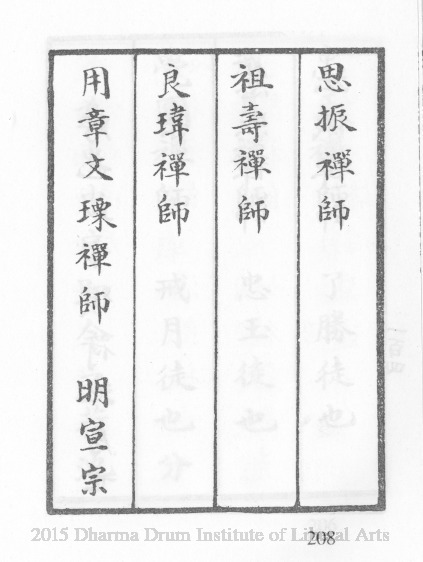 思振禪師
祖壽禪師
良瑋禪師
用章文瑮禪師 明宣宗
2015 Dharma Drum Institute of Liberal Arts
208